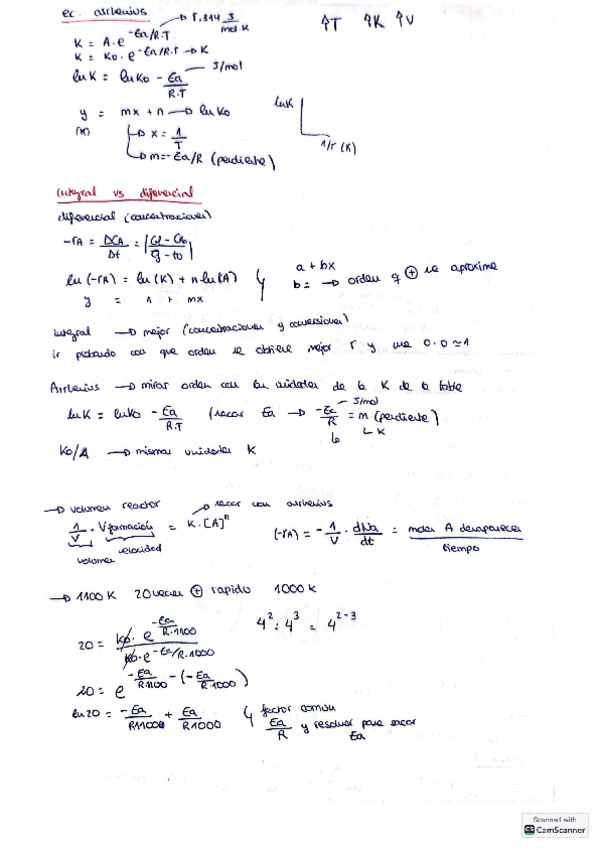 ec. arrhenius → 8,314 J/mol·K ↑T ↑K ↑V
K = A·e^-Ea/R·T
K = Ko·e^-Ea/R·T → K
lnK = lnKo - Ea/R·T → J/mol
y = mx + n → lnKo
(n) → x = 1/T
→ m = -Ea/R (pendiente)
lnK
1/T (K)
Integral vs diferencial
diferencial (concentraciones)
-rA = ΔCA/Δt
ln(-rA) = ln(K) + n·ln(A)
y = n + mx
a + bx
b = → orden q ⊕ se aproxime
integral → mejor (concentraciones y conversiones)
ir probando con que orden se obtiene mejor r y
Arrhenius → mirar orden con las unidades de la K de la tabla
lnK = lnKo - Ea/R·T (sacar Ea → -Ea/R = m (pendiente)
J/mol
K
Ko/A → mismas unidades K
→ volumen reactor → sacar con arrhenius
1/V · Vformación = K·[A]^n
volumen velocidad
(-rA) = -1/V · dNa/dt = moles A desaparecen/tiempo
→ 1100 K 20 veces ⊕ rapido 1000 K
20 = Ko·e^-Ea/R·1100 / Ko·e^-Ea/R·1000
4^2 : 4^3 = 4^2-3
20 = e^-Ea/R1100 - (-Ea/R1000)
ln20 = -Ea/R1100 + Ea/R1000
factor comun
Ea/R y resolver para sacar Ea
Scanned with
CS CamScanner